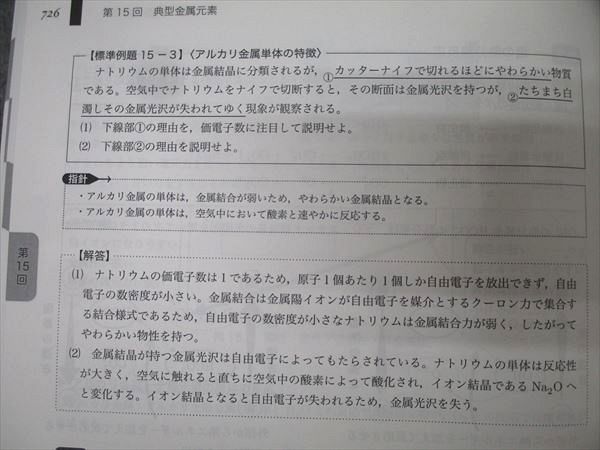 726
第15回 典型金属元素
【標準例題15-3】〈アルカリ金属単体の特徴〉
ナトリウムの単体は金属結晶に分類されるが，①カッターナイフで切れるほどにやわらかい物質
である。空気中でナトリウムをナイフで切断すると，その断面は金属光沢を持つが，②たちまち白
濁しその金属光沢が失われてゆく現象が観察される。
(1) 下線部①の理由を，価電子数に注目して説明せよ。
(2) 下線部②の理由を説明せよ。
指針
・アルカリ金属の単体は，金属結合が弱いため，やわらかい金属結晶となる。
・アルカリ金属の単体は，空気中において酸素と速やかに反応する。
第15回
【解答】
(1) ナトリウムの価電子数は1であるため，原子1個あたり1個しか自由電子を放出できず，自由
電子の数密度が小さい。金属結合は金属陽イオンが自由電子を媒介とするクーロン力で集合す
る結合様式であるため，自由電子の数密度が小さなナトリウムは金属結合力が弱く，したがって
やわらかい物性を持つ。
(2) 金属結晶が持つ金属光沢は自由電子によってもたらされている。ナトリウムの単体は反応性
が大きく，空気に触れると直ちに空気中の酸素によって酸化され，イオン結晶であるNa₂Oへ
と変化する。イオン結晶となると自由電子が失われるため，金属光沢を失う。